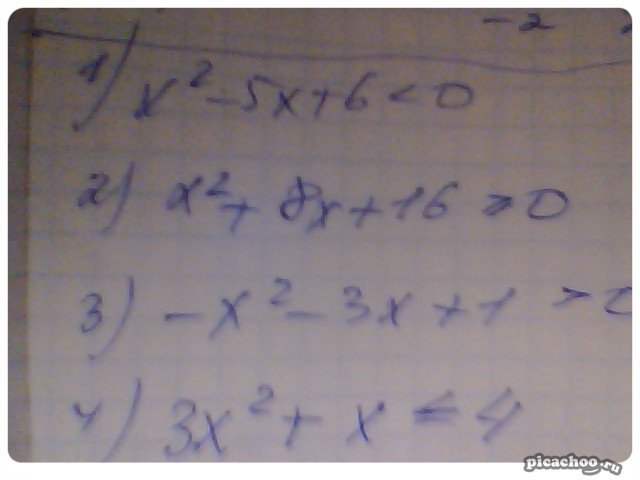 -2
1) x² - 5x + 6 < 0
2) x² + 8x + 16 > 0
3) -x² - 3x + 1 > 0
4) 3x² + x ≤ 4
picachoo.ru